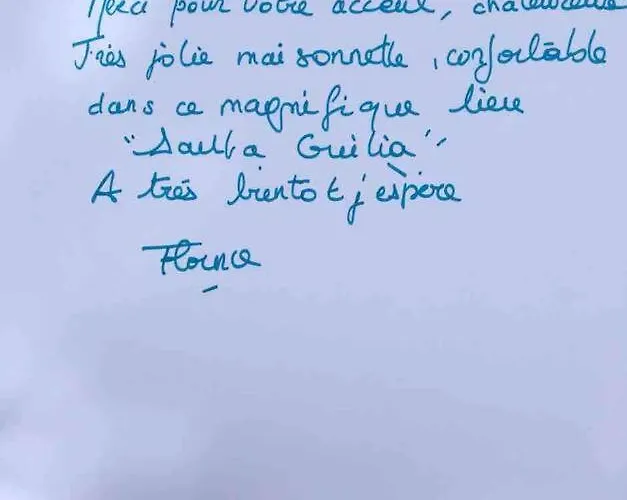 Merci pour votre acceuil, chaleureux
Très jolie maisonnette, confortable
dans ce magnifique lieu
"Santa Guilia"
A très bientot j'espère
Florence